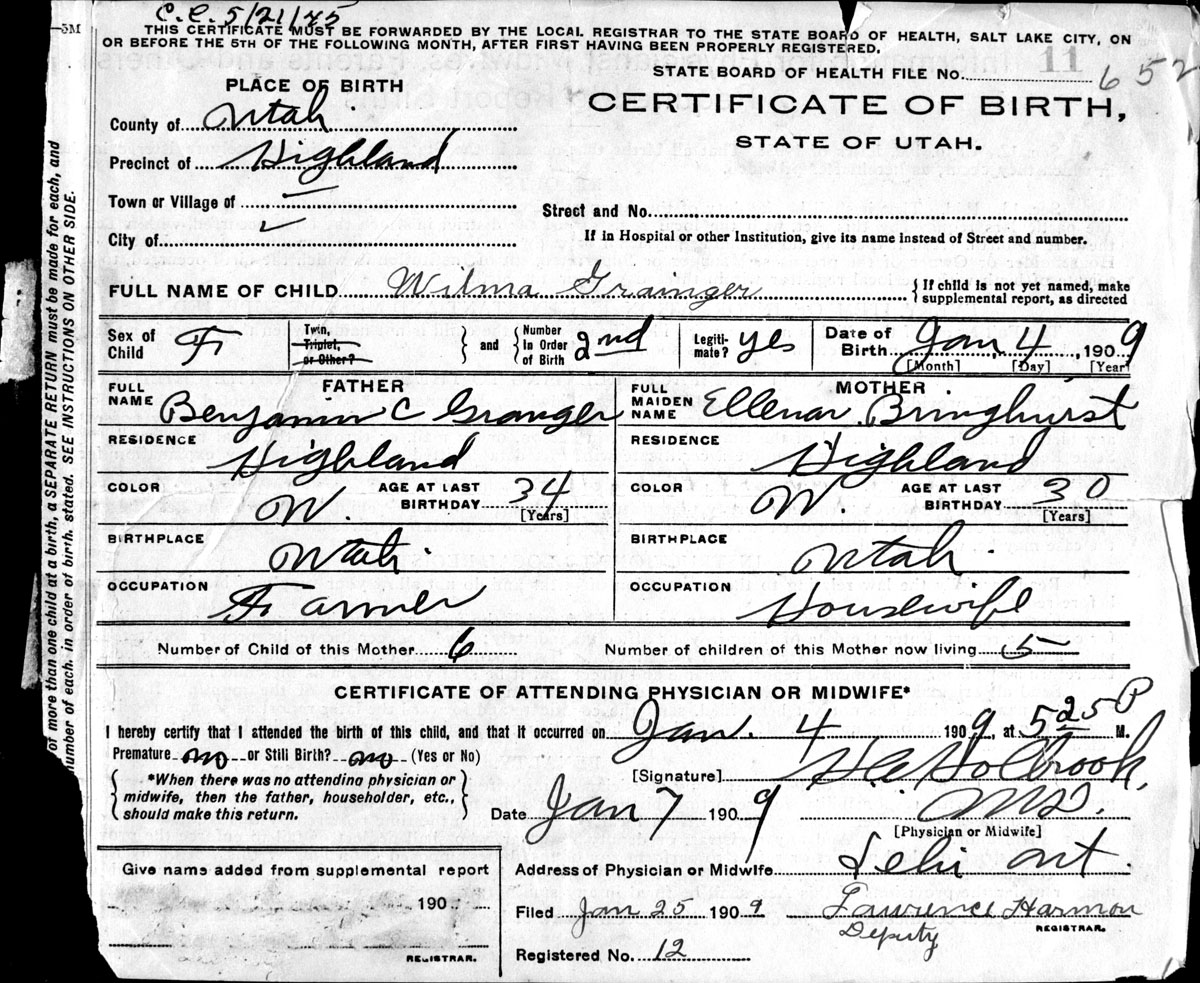 C.C. 5/21/45
THIS CERTIFICATE MUST BE FORWARDED BY THE LOCAL REGISTRAR TO THE STATE BOARD OF HEALTH, SALT LAKE CITY, ON
OR BEFORE THE 5TH OF THE FOLLOWING MONTH, AFTER FIRST HAVING BEEN PROPERLY REGISTERED.
5M
STATE BOARD OF HEALTH FILE No. 11 652
PLACE OF BIRTH
CERTIFICATE OF BIRTH,
STATE OF UTAH.
County of Utah
Precinct of Highland
Town or Village of
City of
Street and No.
If in Hospital or other Institution, give its name instead of Street and number.
FULL NAME OF CHILD Wilma Grainger { If child is not yet named, make supplemental report, as directed
Sex of Child F
Twin, Triplet, or Other? } and { Number In Order of Birth 2nd
Legiti-mate? yes
Date of Birth Jan 4, 1909
[Month] [Day] [Year]
FATHER
FULL NAME Benjamin C Granger
MOTHER
FULL MAIDEN NAME Ellenor Bringhurst
RESIDENCE Highland
RESIDENCE Highland
COLOR W. AGE AT LAST BIRTHDAY 34 [Years]
COLOR W. AGE AT LAST BIRTHDAY 30 [Years]
BIRTHPLACE Utah.
BIRTHPLACE Utah.
OCCUPATION Farmer
OCCUPATION Housewife
Number of Child of this Mother 6 Number of children of this Mother now living 5
CERTIFICATE OF ATTENDING PHYSICIAN OR MIDWIFE*
I hereby certify that I attended the birth of this child, and that it occurred on Jan. 4 1909, at 5 25 P M.
Premature no or Still Birth? no (Yes or No)
[Signature] Holbrook,
M.D.
{ *When there was no attending physician or
midwife, then the father, householder, etc.,
should make this return. }
Date Jan 7 1909
[Physician or Midwife]
Address of Physician or Midwife Lehi Ut.
Give name added from supplemental report
190
REGISTRAR.
Filed Jan 25 1909 Lawrence Harmon
Deputy REGISTRAR.
Registered No. 12
of more than one child at a birth, a SEPARATE RETURN must be made for each, and
number of each, in order of birth, stated. SEE INSTRUCTIONS ON OTHER SIDE.